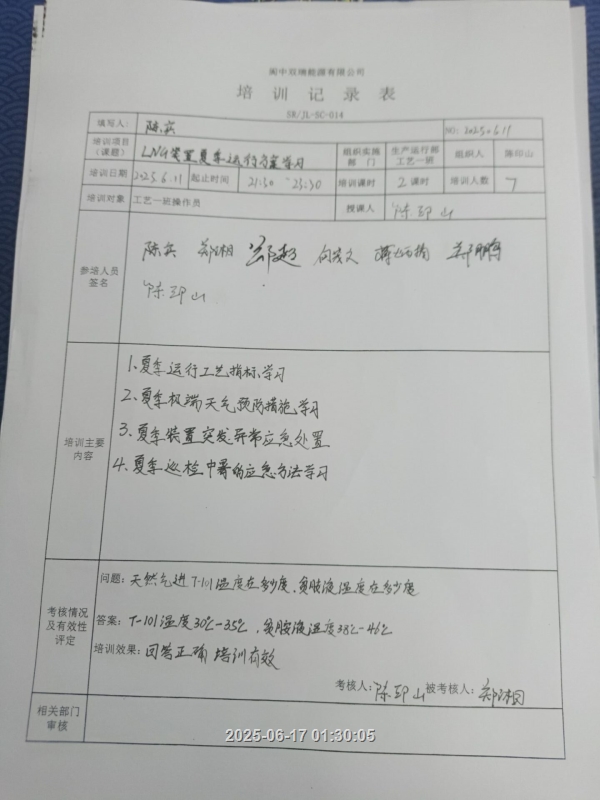 阆中双瑞能源有限公司
培训记录表
SR/JL-SC-014
填写人： 陈宾 NO: 2025.6.11
培训项目（课题） LNG装置夏季运行方案学习 组织实施部门 生产运行部工艺一班 组织人 陈印山
培训日期 2025.6.11 起止时间 21:30-23:30 培训课时 2课时 培训人数 7
培训对象 工艺一班操作员 授课人 陈印山
参培人员签名
陈宾 郑湘 郑超 郑鹏
陈印山
培训主要内容
1、夏季运行工艺指标学习
2、夏季极端天气预防措施学习
3、夏季装置突发异常应急处置
4、夏季巡检中暑的应急方法学习
考核情况及有效性评定
问题：天然气进T-101温度在多少度，贫胺液温度在多少度
答案：T-101温度30℃-35℃，贫胺液温度38℃-46℃
培训效果：回答正确 培训有效
考核人：陈印山 被考核人：郑湘
相关部门审核
2025-06-17 01:30:05